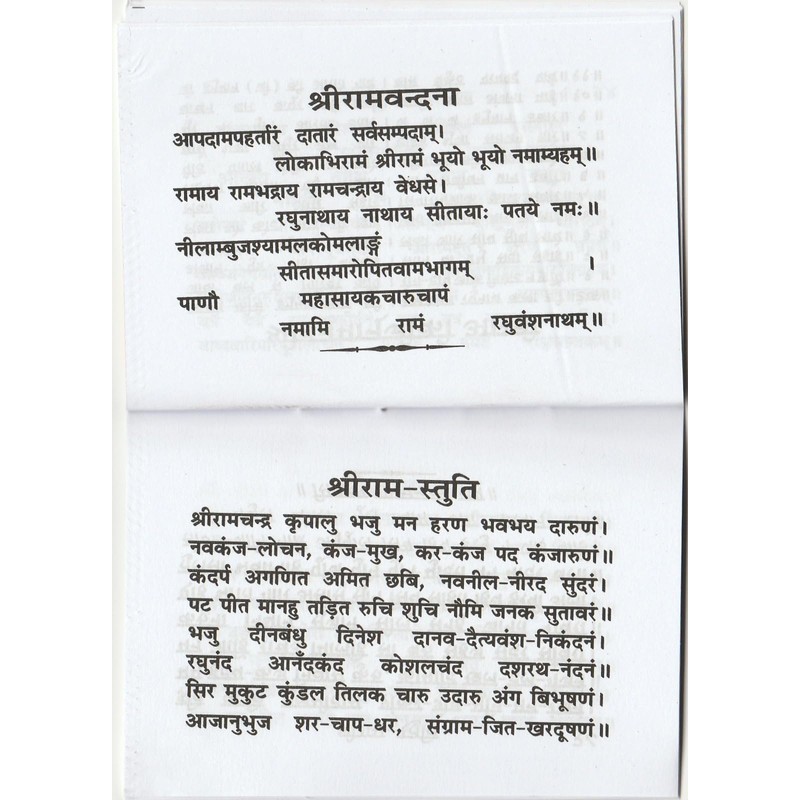 श्रीरामवन्दना
आपदामपहर्तारं दातारं सर्वसम्पदाम्।
लोकाभिरामं श्रीरामं भूयो भूयो नमाम्यहम्॥
रामाय रामभद्राय रामचन्द्राय वेधसे।
रघुनाथाय नाथाय सीतायाः पतये नमः॥
नीलाम्बुजश्यामलकोमलाङ्गं
सीतासमारोपितवामभागम् ।
पाणौ महासायकचारुचापं
नमामि रामं रघुवंशनाथम्॥
श्रीराम-स्तुति
श्रीरामचन्द्र कृपालु भजु मन हरण भवभय दारुणं।
नवकंज-लोचन, कंज-मुख, कर-कंज पद कंजारुणं॥
कंदर्प अगणित अमित छबि, नवनील-नीरद सुंदरं।
पट पीत मानहु तड़ित रुचि शुचि नौमि जनक सुतावरं॥
भजु दीनबंधु दिनेश दानव-दैत्यवंश-निकंदनं।
रघुनंद आनँदकंद कोशलचंद दशरथ-नंदनं॥
सिर मुकुट कुंडल तिलक चारु उदारु अंग बिभूषणं।
आजानुभुज शर-चाप-धर, संग्राम-जित-खरदूषणं॥